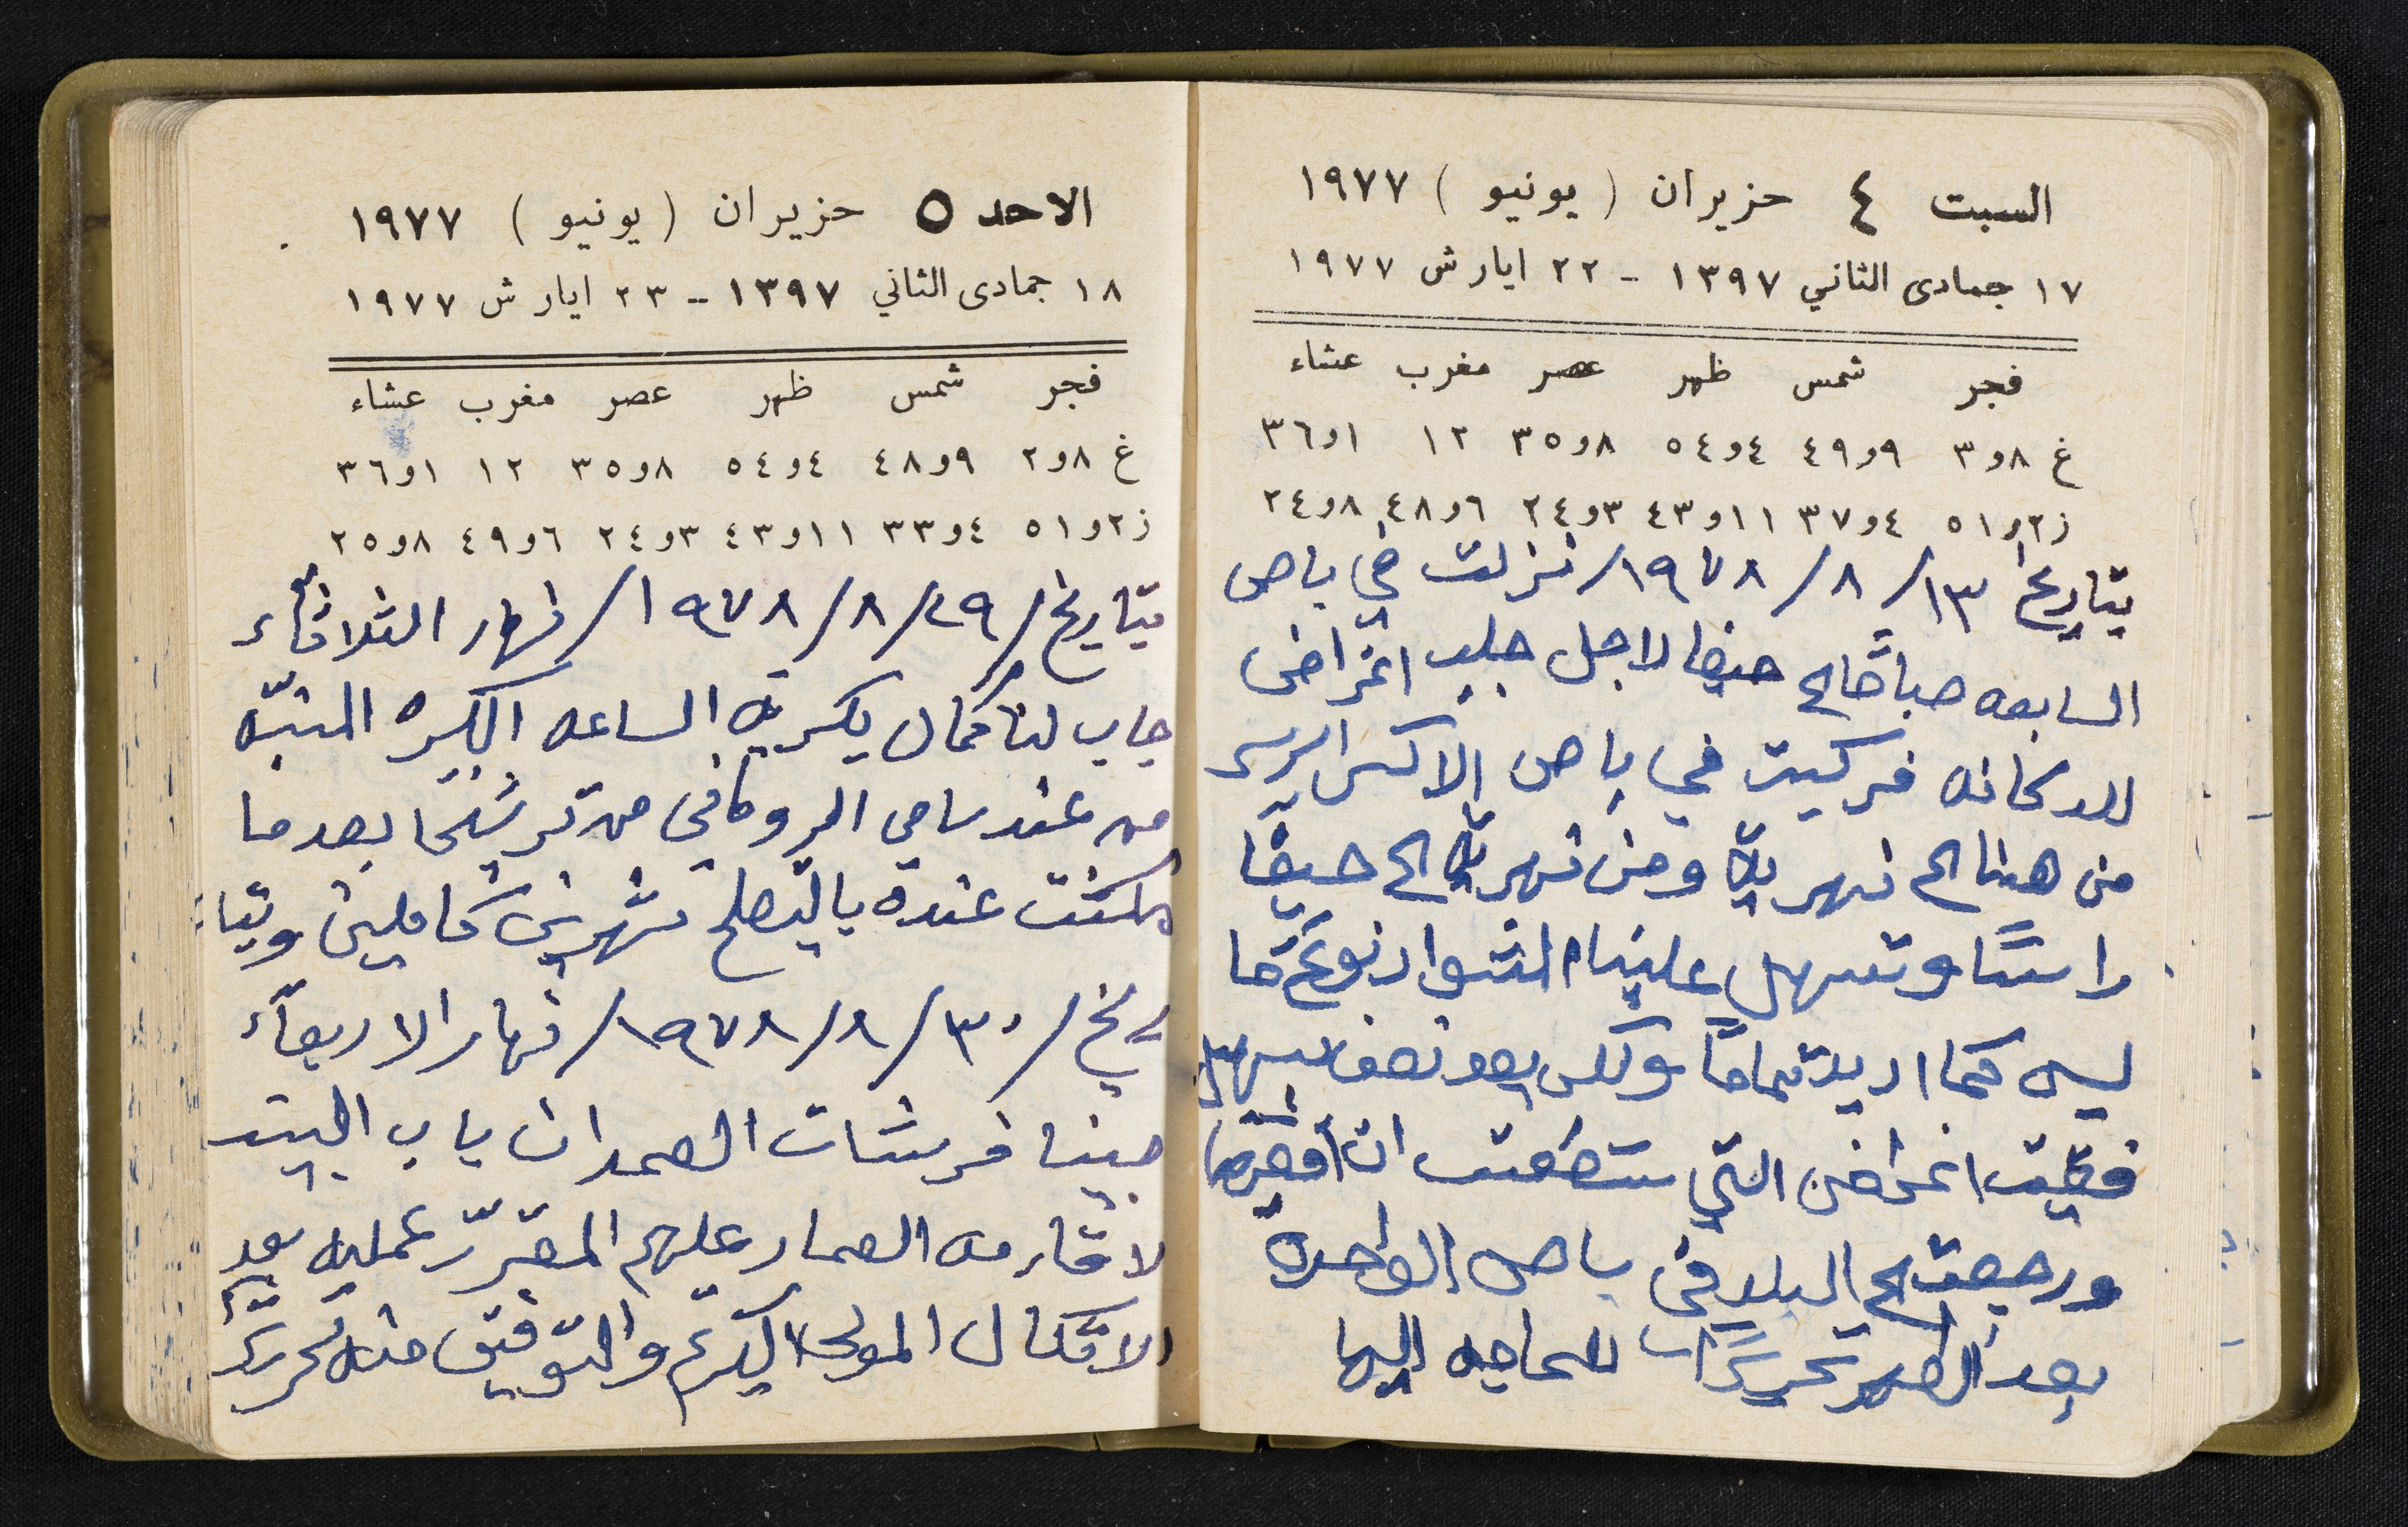 السبت ٤ حزيران ( يونيو ) ١٩٧٧
١٧ جمادى الثاني ١٣٩٧ - ٢٢ ايار ش ١٩٧٧
فجر شمس ظهر عصر مغرب عشاء
غ ٨و٣ ٩و٤٩ ٤و٥٤ ٨و٣٥ ١٢ ١و٣٦
ز ٢و٥١ ٤و٣٧ ١١و٤٣ ٣و٢٤ ٦و٤٨ ٨و٢٤
بتاريخ ١٣/٨/١٩٧٨/ نزلت في باص
السابعه صباحًا الى حيفا لاجل جلب اغراض
للدكانه فركبت في باص الاكسبرس
من هنا الى نهريّا ومن نهريّا الى حيفا
راسًا وتسهل علينا المشوار نوعًا ما
ليس كما اريد تمامًا ولكن بعد نصف تسهيل
فقضيت اغراضي التي ستطعت ان اقضيها
ورجعت الى البلد في باص الواحدة
بعد الظهر تحريرًا للحاجه اليها
الاحد ٥ حزيران ( يونيو ) ١٩٧٧
١٨ جمادى الثاني ١٣٩٧ - ٢٣ ايار ش ١٩٧٧
فجر شمس ظهر عصر مغرب عشاء
غ ٨و٢ ٩و٤٨ ٤و٥٤ ٨و٣٥ ١٢ ١و٣٦
ز ٢و٥١ ٤و٣٣ ١١و٤٣ ٣و٢٤ ٦و٤٩ ٨و٢٥
بتاريخ/٢٩/٨/١٩٧٨/ نهار الثلاثاء
جاب لنا كمال بكريّه الساعه الكبيره المنبّه
من عند سامي الروكافي من ترشيحا بعدما
مكثت عنده بالتصلح شهرين كاملين وبتا
ريخ/٣٠/٨/١٩٧٨/ نهار الاربعاء
جبنا فرشات الصمدان باب البيت
لاقارمه العمار عليهم المقرّر عمليه بعد
الاتكال المولى الكريم والتوفيق منه تحريرًا